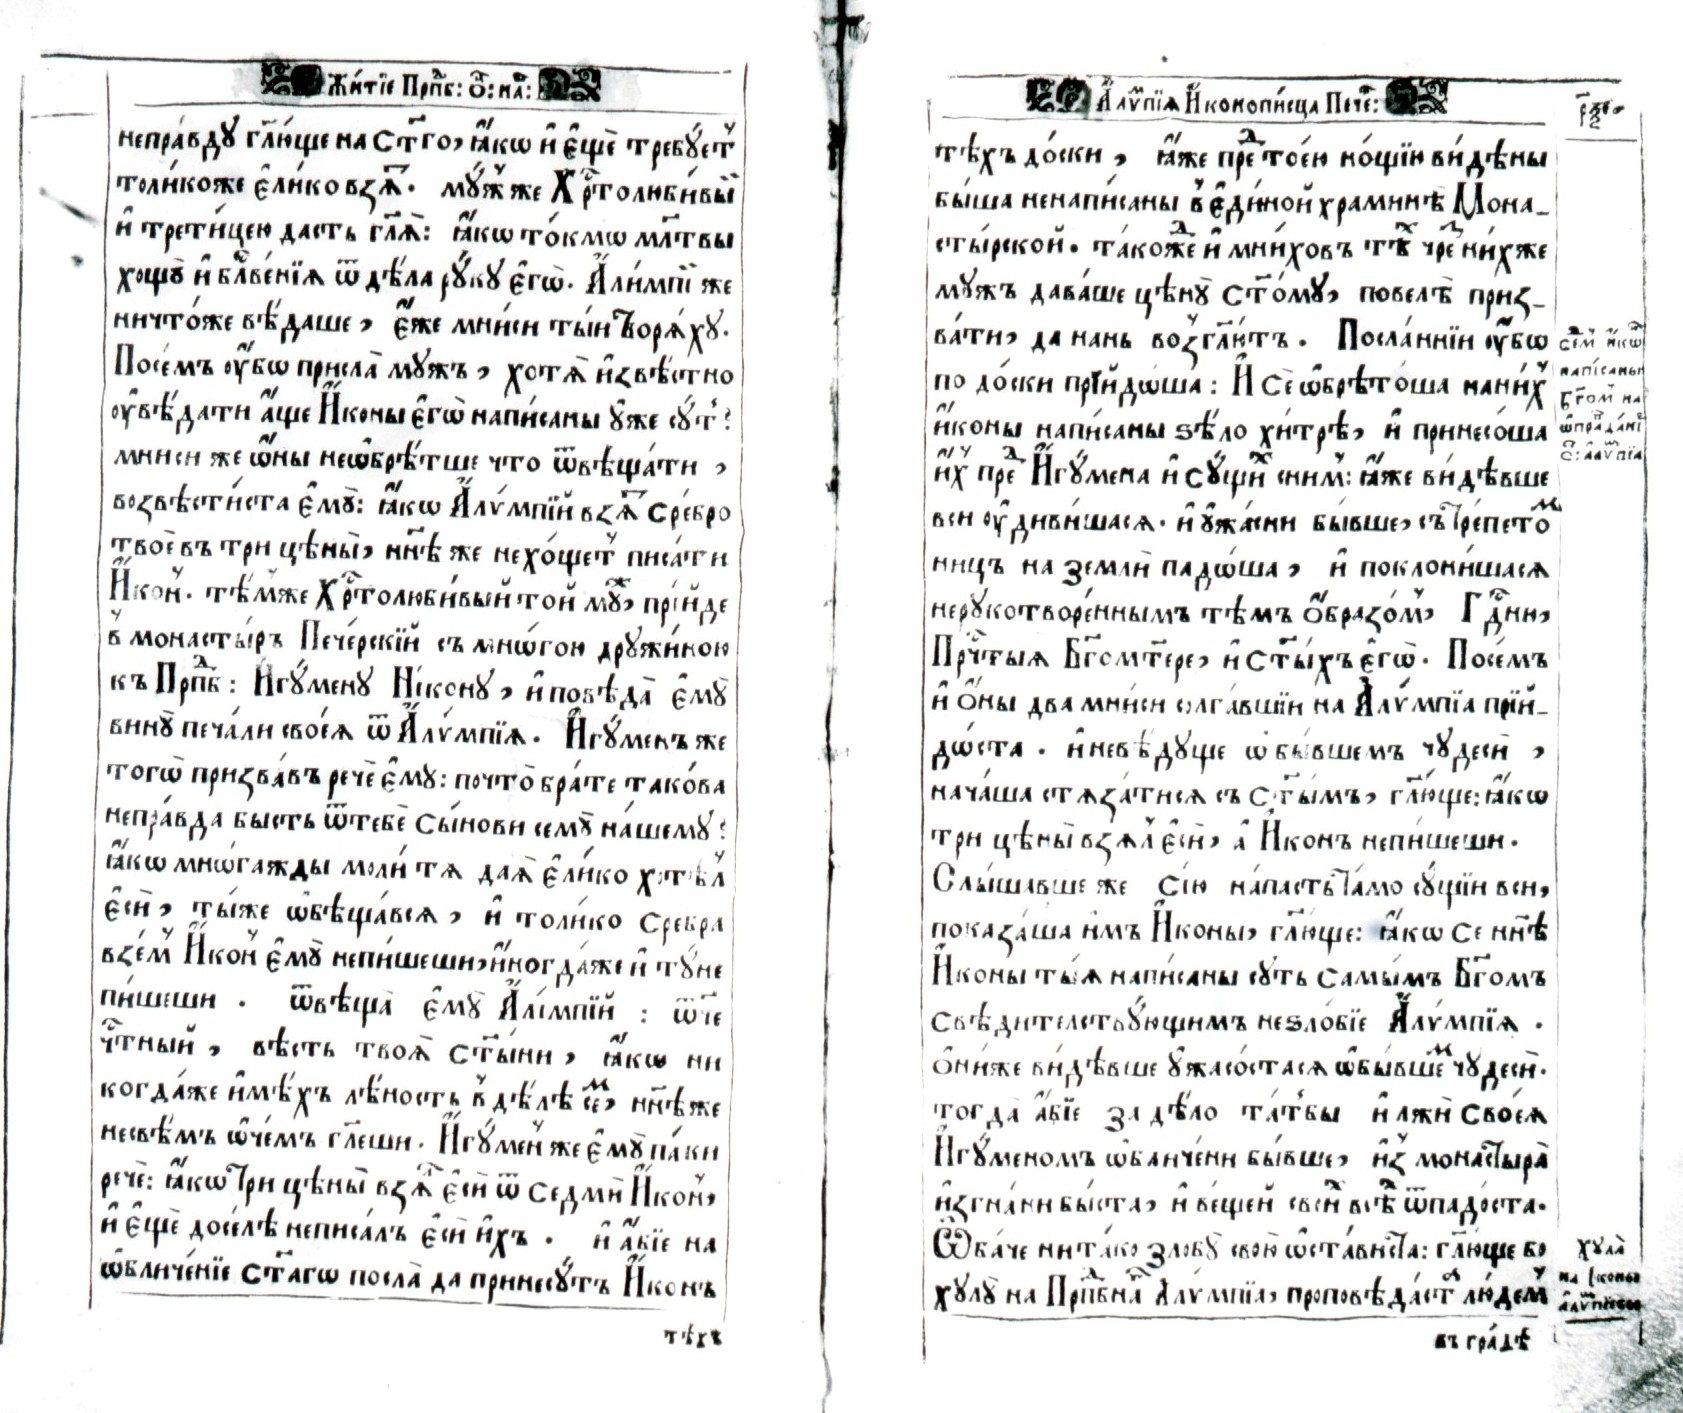 Житїе Прпⷣб: Ѻ҃: на́:
непра́вду гл҃юще на Ст҃го, ꙗ҆́кѡ и҆ є҆щѐ требꙋ́етъ
толи́коже є҆ли́ко взѧ̀. мꙋ́ж же Хрⷭ҇толюби́вый
и҆ трети́цею дасть гл҃ѧ: ꙗ҆́кѡ то́кмѡ мл҃твы
хощꙋ̀ и҆ бл҃ве́нїѧ ѿ дѣ́ла рꙋ́кꙋ є҆гѡ̀. А҆ли́мпїй же
ничто́же вѣ́даше, є҆́же мни́си ты́и творѧ́хꙋ.
Посе́мъ ᲂу҆́бѡ присла̀ мꙋжъ, хотѧ̀ и҆звѣ́стно
ᲂу҆вѣ́дати а҆́ще И҆́коны є҆гѡ̀ напи́саны ᲂу҆же сꙋ́ть?
мниси же ѡ҆́ны неѡбрѣ́тше что ѿвѣща́ти,
возвѣсти́ста є҆мꙋ̀: ꙗ҆́кѡ А҆лѵ́мпїй взѧ̀ сребро
твоѐ въ три цѣны̀, нн҃ѣ же не хо́щетъ писа́ти
И҆ко́нъ. тѣ́мже Хрⷭ҇толюби́вый той мꙋⷤ, прїи́де
в̾ монасты́ръ Пече́рскїй съ мно́гою дрꙋжи́ною
къ Прпⷣб: И҆гꙋ́менꙋ Ні́конꙋ, и҆ повѣ́да є҆мꙋ̀
винꙋ̀ печа́ли своеѧ̀ ѿ А҆лѵ́мпїѧ. И҆гꙋ́менъ же
того̀ призва́въ речѐ є҆мꙋ: почто̀ бра́те такова
непра́вда бысть ѿ тебѐ сы́нови семꙋ̀ на́шемꙋ?
ꙗ҆́кѡ мно́гажды моли́ тѧ даѧ̀ є҆ли́ко хотѣ́лъ
є҆сѝ, ты́же ѡ҆бѣща́всѧ, и҆ толи́ко сребра
взе́мъ И҆ко́нъ є҆мꙋ̀ непи́шеши, и҆ногда́же и҆ тꙋ́не
пи́шеши. ѿвѣща̀ є҆мꙋ̀ А҆лі́мпїй: ѿч҃е
чⷭ҇тный, вѣсть твоѧ̀ ст҃ы́ни, ꙗ҆́кѡ ни
когда́же и҆мѣ́хъ лѣ́ность в̾ дѣ́лѣ сеⷨ, нн҃ѣ же
несвѣ́мъ ѡ҆ че́мъ гл҃еши. И҆гꙋ́менъ же є҆мꙋ̀ па́ки
речѐ: ꙗ҆́кѡ три цѣны̀ взѧ́лъ є҆сѝ ѿ седмѝ И҆ко́нъ,
и҆ є҆щѐ досе́лѣ неписа́лъ є҆сѝ и҆̀хъ. и҆ а҆́бїе на
ѡ҆бличе́нїе ст҃а́гѡ посла̀ да принесꙋ́тъ И҆ко́нъ
тѣхъ
А҆лѵ́мпїѧ И҆конопи́сца Пече́:
тѣ́хъ до́ски, ꙗ҆́же преⷣ то́ею но́щїю ви́дѣны
бы́ша ненапи́саны в̾ є҆ди́ной храминѣ Мона-
сты́рской. та́коже и҆ мни́ховъ тѣⷯ чреⷥ ни́хже
мꙋ́жъ дава́ше цѣ́нꙋ ст҃о́мꙋ, повелѣ̀ приз-
ва́ти, да нань возгл҃ютъ. По́сланнїи ᲂу҆́бѡ
по до́ски прїидо́ша: И҆ сѐ ѡ҆брѣто́ша на ни́хъ
и҆́коны напи́саны ѕѣ́ло хи́трѣ, и҆ принесо́ша
и҆́хъ преⷣ И҆гꙋ́мена и҆ сꙋ́щиⷯ сни́мъ: ꙗ҆́же ви́дѣвше
вси ᲂу҆диви́шасѧ. и҆ ᲂу҆жа́сни бы́вше, съ тре́петоⷨ
ницъ на земли̑ падо́ша, и҆ поклони́шасѧ
нерꙋкотворе́ннымъ тѣ́мъ ѻ҆́бразомъ, Гⷭ҇дни,
Прчⷭ҇тыѧ Бг҃омт҃ере, и҆ ст҃ы́хъ є҆гѡ̀. Посе́мъ
и҆ ѻ҆́ны два мни́си солга́вшїи на А҆лѵ́мпїа прїи-
до́ста. и҆ невѣ́дꙋще ѡ҆ бы́вшемъ чꙋ́деси,
нача́ша стѧза́тисѧ съ ст҃ы́мъ, гл҃юще: ꙗ҆́кѡ
три цѣны̀ взѧ́лъ є҆сѝ, а҆ И҆ко́нъ непи́шеши.
Слы́шавше же сїю̀ на́пасть та́мо сꙋ́щїи вси,
показа́ша и҆̀мъ И҆ко́ны, гл҃юще: ꙗ҆́кѡ се нн҃ѣ
И҆коны ты́ѧ напи́саны сꙋть самы́мъ Бг҃омъ
свѣдителствꙋ́ющимъ неѕло́бїе А҆лѵ́мпїѧ.
Ѻ҆ни́же ви́дѣвше ᲂу҆жасо́стасѧ ѡ҆ бы́вшеⷨ чꙋ́деси.
тогда̀ а҆́бїе за дѣ́ло та́тьбы и҆ лжи̑ своеѧ̀
И҆гꙋ́меномъ ѡ҆бличе́ни бы́вше, и҆з̾ монастырѧ̀
и҆згна́ни бы́ста, и҆ ве́щей свои́ⷯ всѣⷯ ѿпадо́ста.
Ѻ҆ба́че ни та́ко ѕло́бꙋ свою ѡ҆ста́виста: гл҃юще бо
хꙋлꙋ̀ на Прпⷣбна А҆лѵ́мпїа, проповѣ́даста лю́демъ
въ гра́дѣ
сеⷨ И҆ко́
напи́саны
Бг҃омъ на
ѡ҆правда́нї
С: А҆лѵ́мпїа
хꙋла̀
на І҆коны